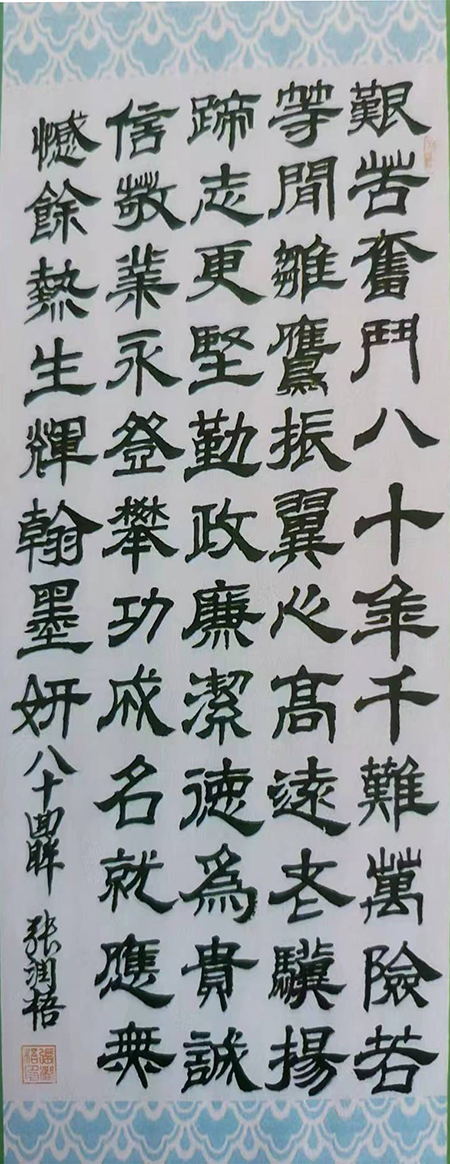 艱苦奮鬥八十年千難萬險若
等閒雛鷹振翼心高遠老驥揚
蹄志更堅勤政廉潔德為貴誠
信敬業永登攀功成名就應無
憾餘熱生輝翰墨妍
八十回眸 張潤梧